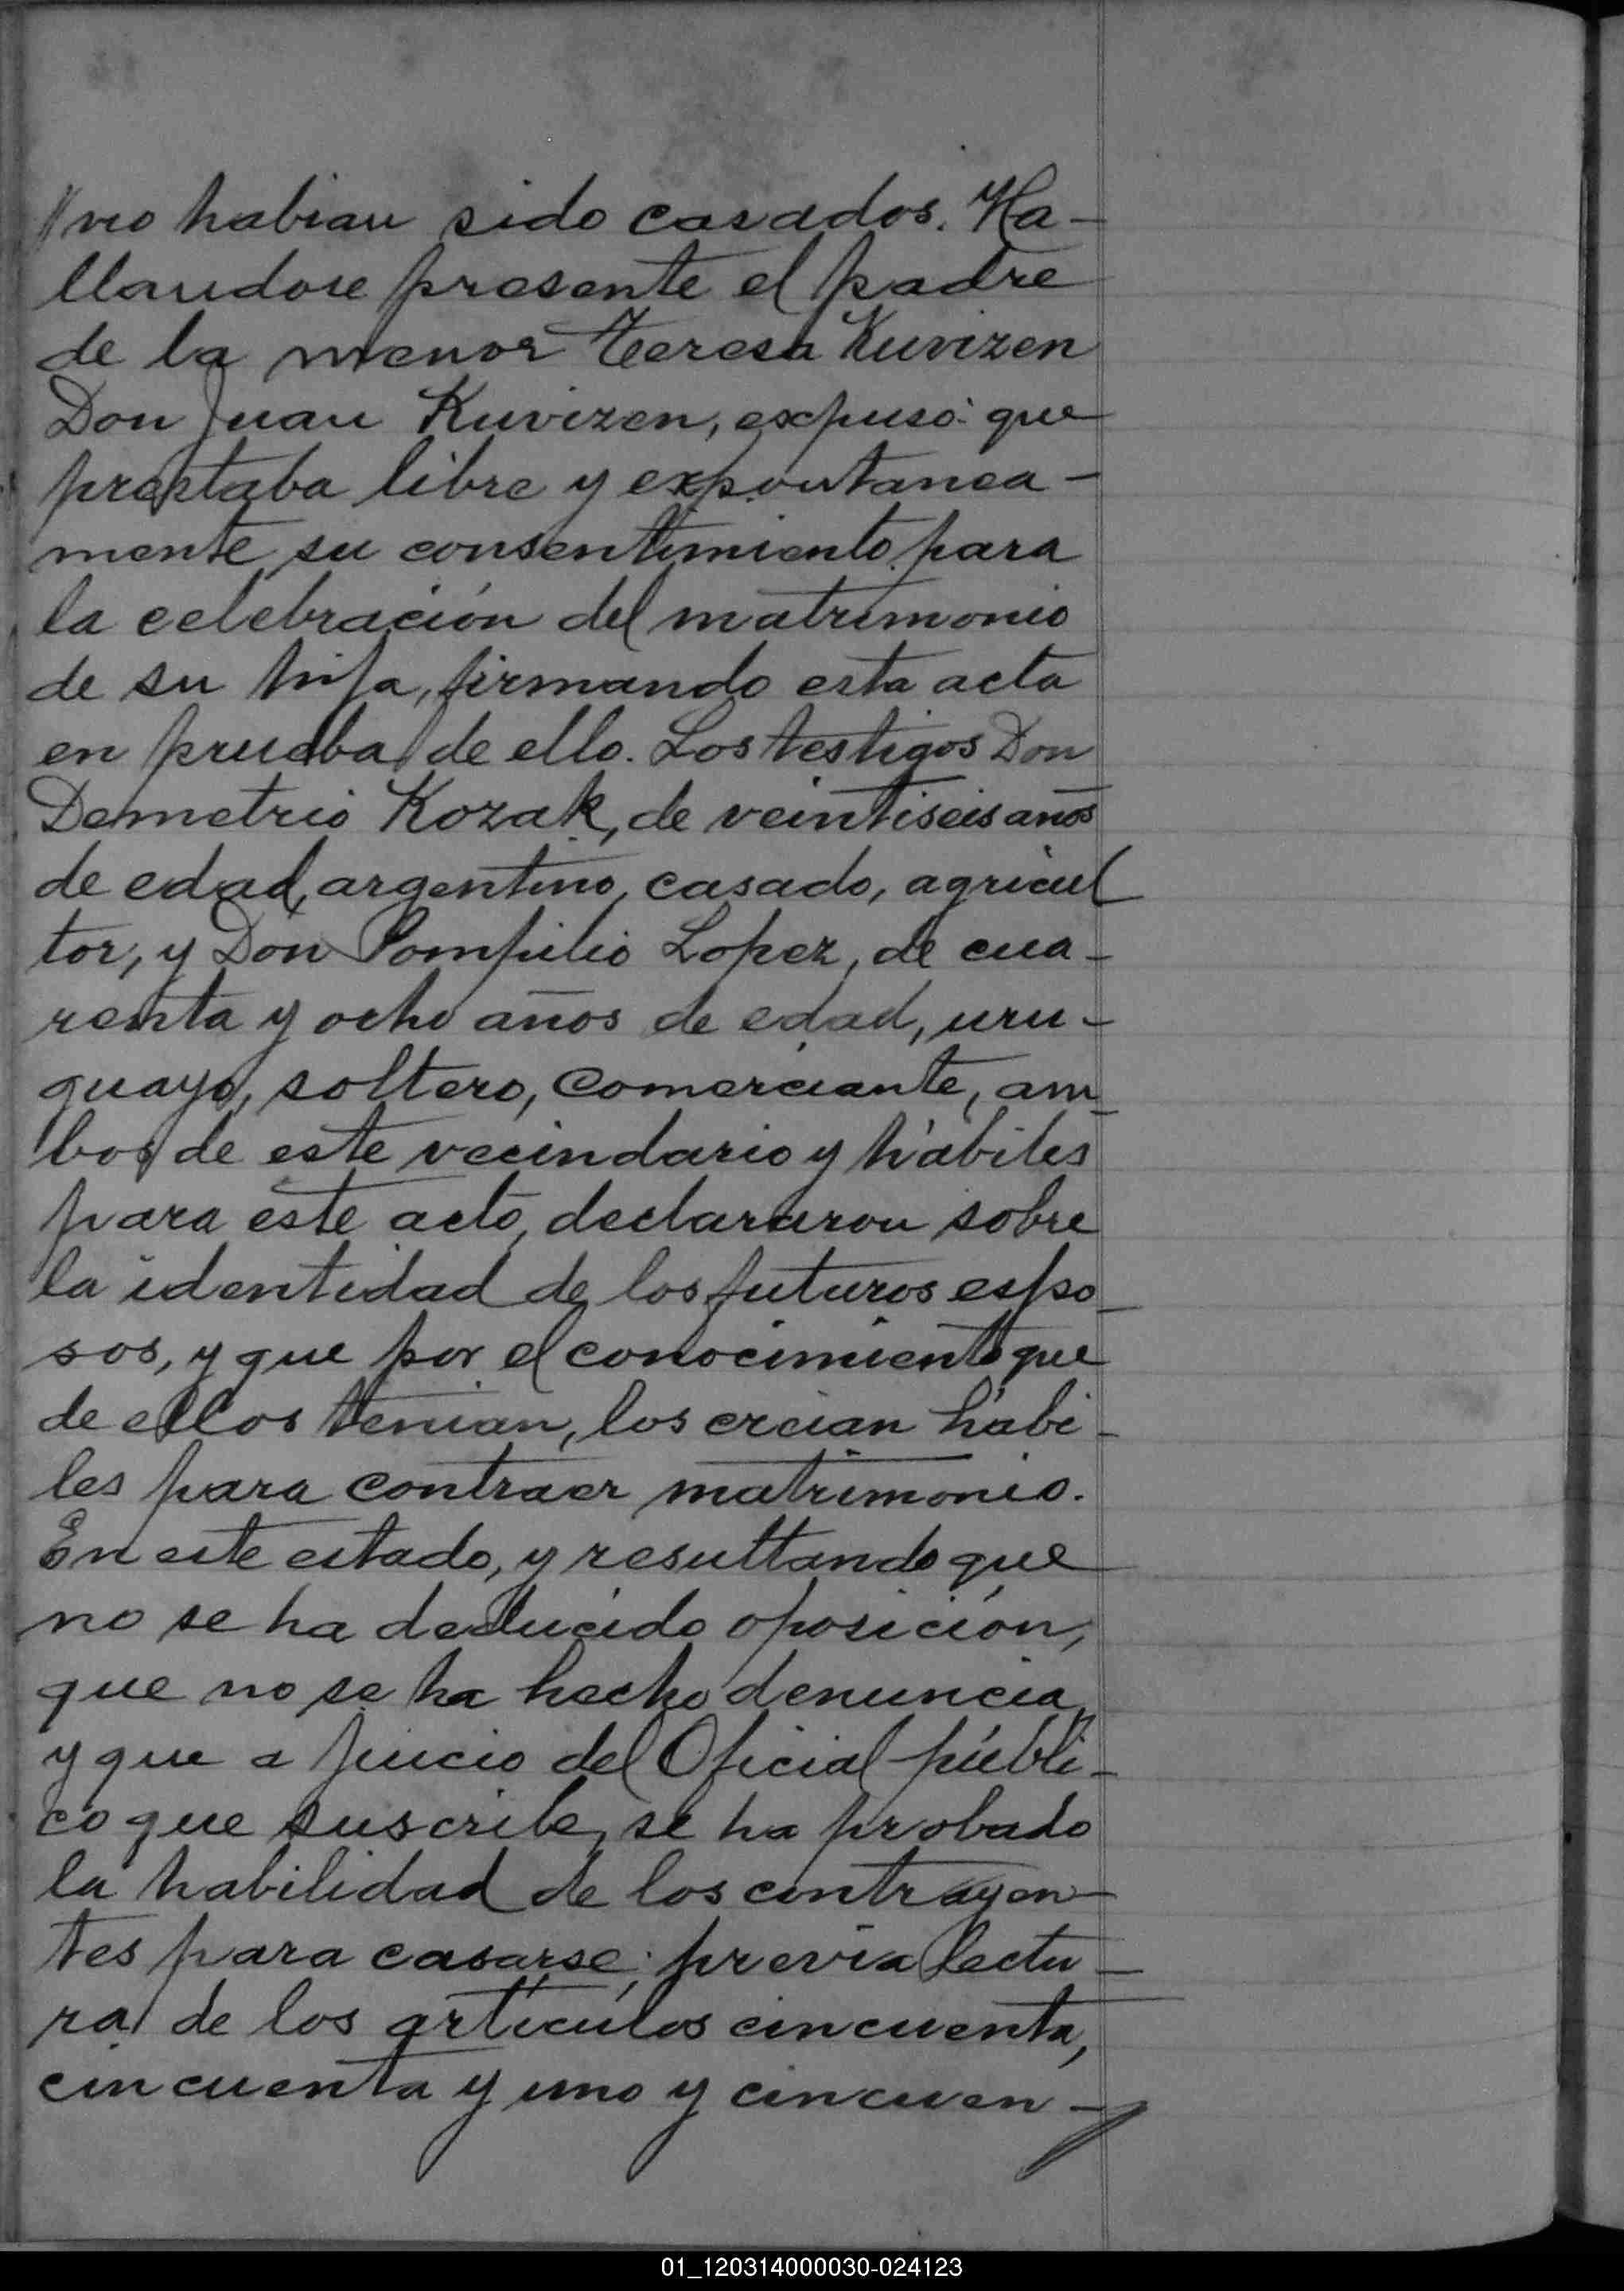 //no habian sido casados. Ha-
llandose presente el padre
de la menor Teresa Kuvizen
Don Juan Kuvizen, expuso: que
prestaba libre y expontanea-
mente su consentimiento para
la celebración del matrimonio
de su hija, firmando esta acta
en prueba de ello. Los testigos Don
Demetrio Kozak, de veintiseis años
de edad, argentino, casado, agricul
tor, y Don Pompilio Lopez, de cua-
renta y ocho años de edad, uru-
guayo, soltero, comerciante, am-
bos de este vecindario y hábiles
para este acto, declararon sobre
la identidad de los futuros espo-
sos, y que por el conocimiento que
de ellos tenian, los creian hábi-
les para contraer matrimonio.
En este estado, y resultando que
no se ha deducido oposición,
que no se ha hecho denuncia,
y que a juicio del Oficial públi-
co que suscribe, se ha probado
la habilidad de los contrayen-
tes para casarse; previa lectu-
ra de los artículos cincuenta,
cincuenta y uno y cincuen-//
01_120314000030-024123